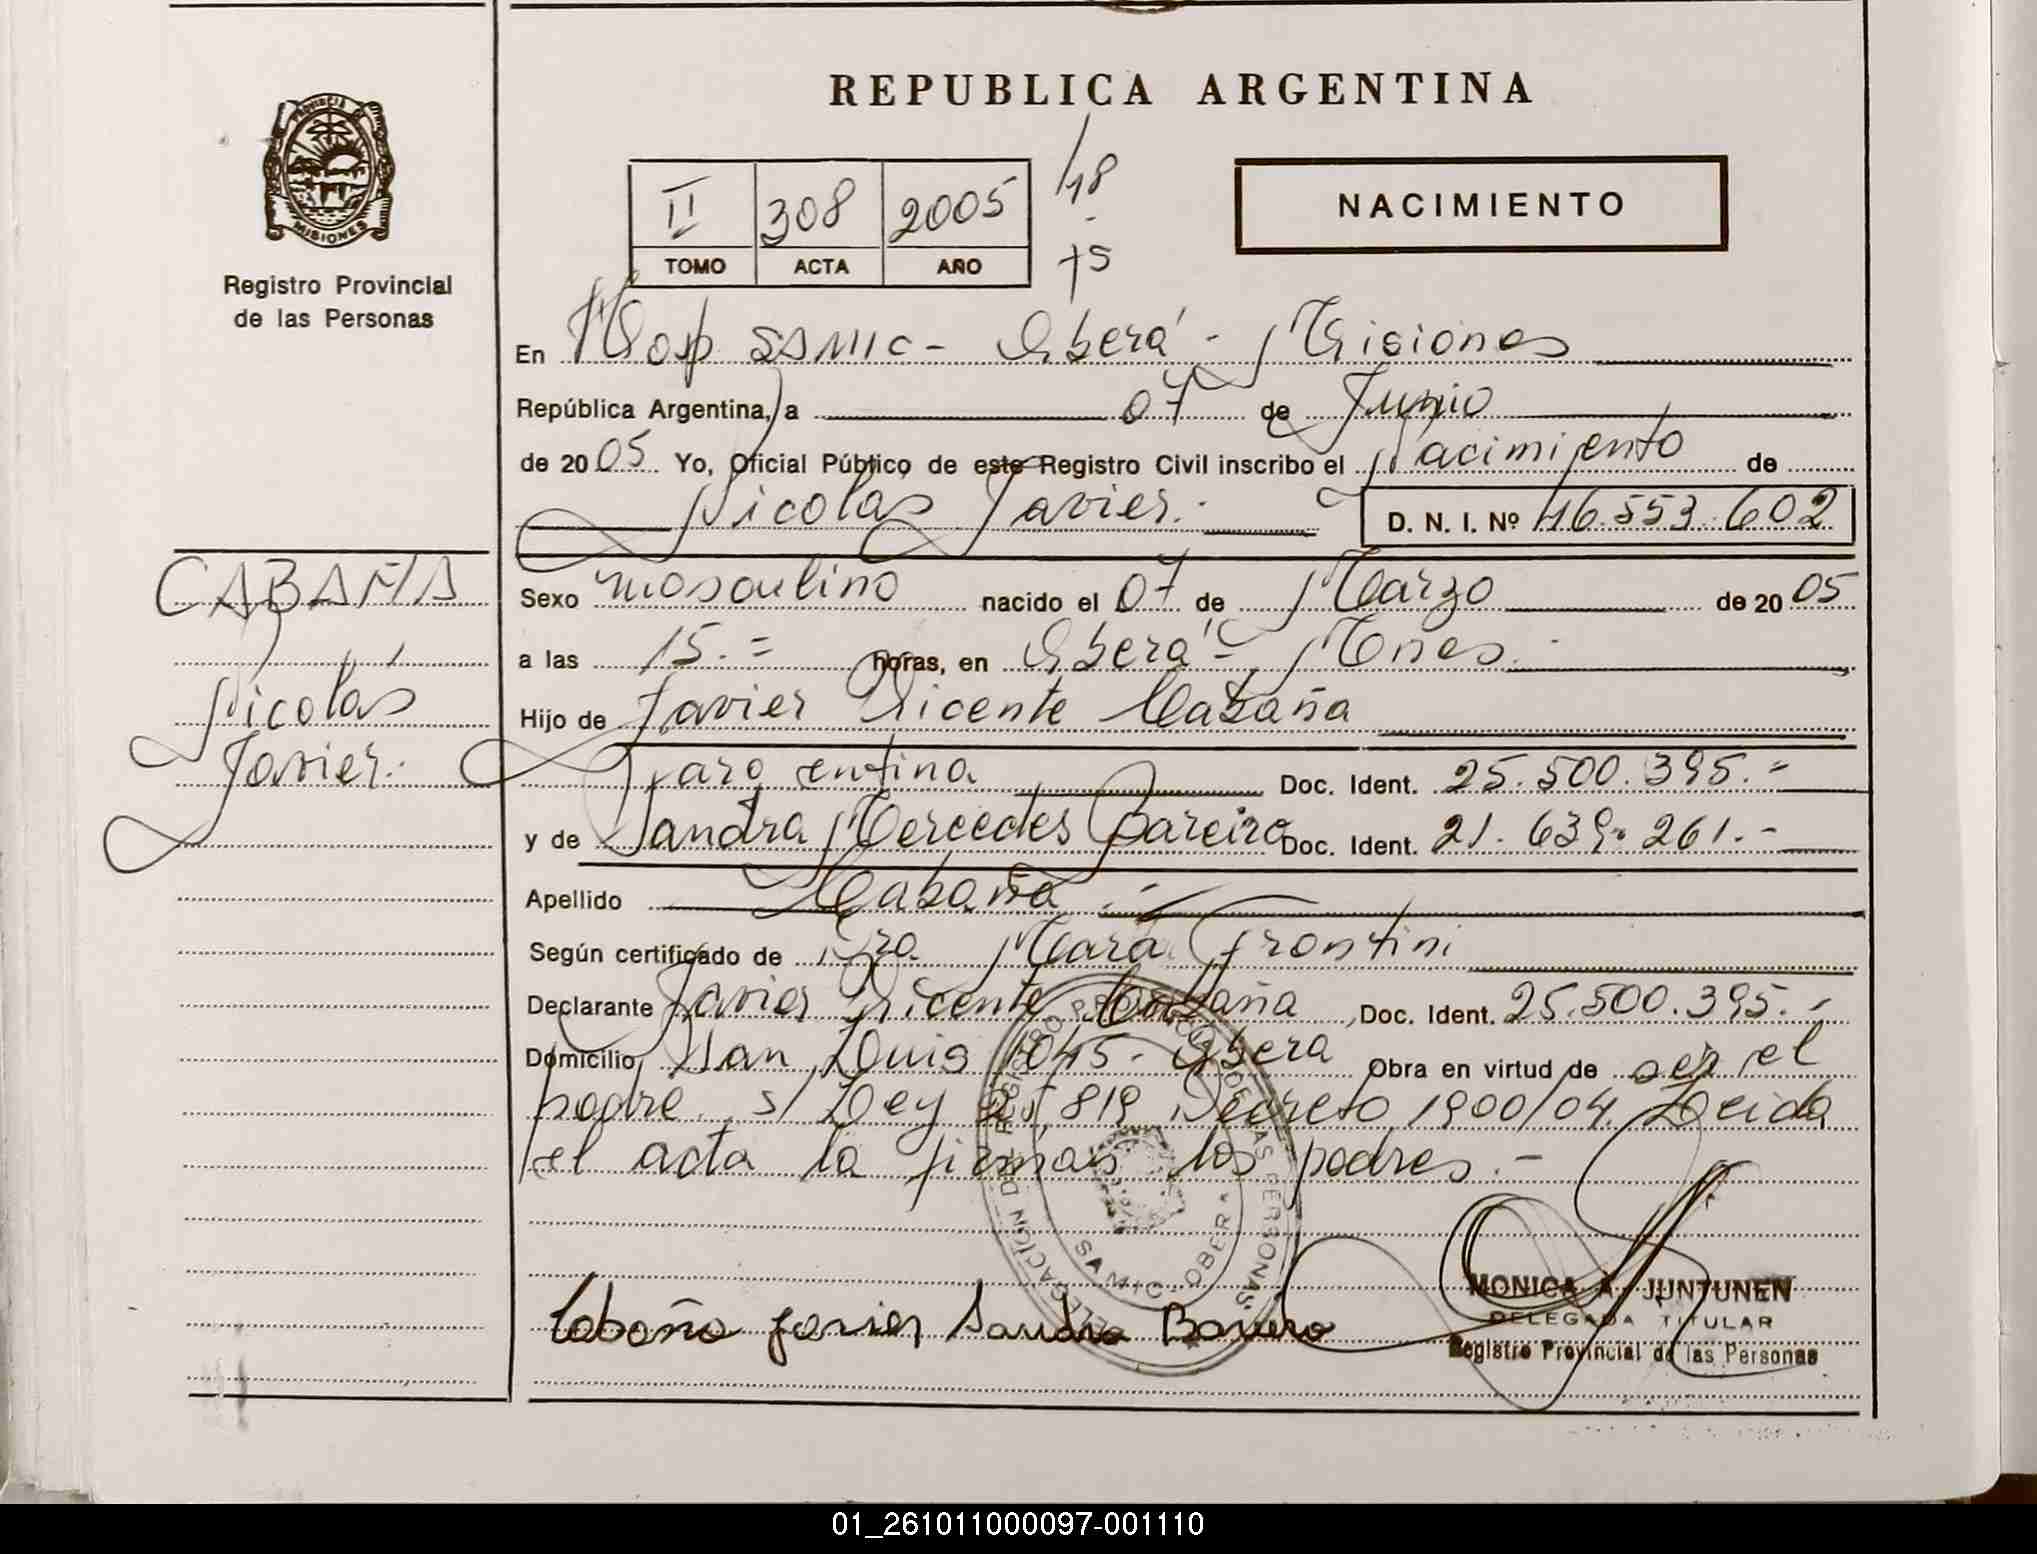 REPUBLICA ARGENTINA
PROVINCIA
MISIONES
Registro Provincial
de las Personas
II 308 2005
TOMO ACTA AÑO
NACIMIENTO
En Hosp SAMIC - Oberá - Misiones
República Argentina, a 07 de Junio
de 20 05 Yo, Oficial Público de este Registro Civil inscribo el Nacimiento de
Nicolás Javier.-
D. N. I. Nº 46.553.602
CABAÑA
Nicolás
Javier.-
Sexo masculino nacido el 07 de Marzo de 20 05
a las 15.= horas, en Oberá - Mnes.-
Hijo de Javier Vicente Cabaña
argentina Doc. Ident. 25.500.395.-
y de Sandra Mercedes Bareiro Doc. Ident. 21.639.261.-
Apellido Cabaña.-
Según certificado de Dra. Mara Frontini
Declarante Javier Vicente Cabaña, Doc. Ident. 25.500.395.-
Domicilio San Luis 1045 - Oberá Obra en virtud de ser el
padre s/ Ley 25.819 Decreto 1900/04. Leida
el acta la firman los padres.-
DELEGACION DE REGISTRO PROVINCIAL DE LAS PERSONAS
SAMIC - OBERA
Cabaña Javier Sandra Bareiro
MONICA A. JUNTUNEN
DELEGADA TITULAR
Registro Provincial de las Personas
01_261011000097-001110